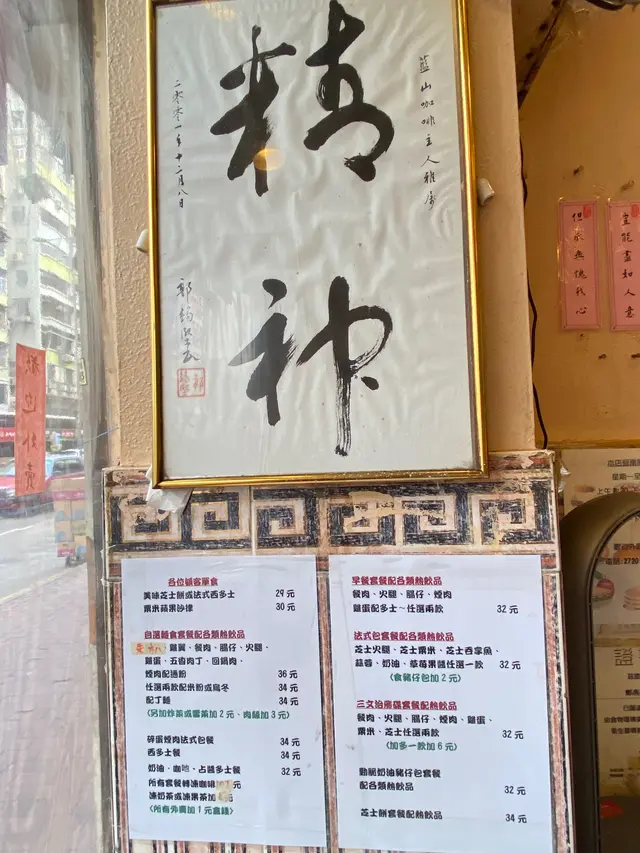 精神
藍山咖啡主人雅屬
二零零一年十二月八日
郭
但求無愧我心
豈能盡如人意
敬世外賣
各位顧客單食
美味芝士餅或法式西多士 29元
粟米蘋果沙律 30元
自選麵食套餐配各類熱飲品
雞翼、餐肉、腸仔、火腿、
雞蛋、五香肉丁、回鍋肉、
煙肉配通粉 36元
任選兩款配米粉或烏冬 34元
配丁麵 34元
(另加炒菜或雪菜加2元、肉醬加3元)
碎蛋煙肉法式包餐 34元
西多士餐 34元
奶油、咖吔、占醬多士餐 32元
所有套餐轉凍咖啡
凍奶茶或凍果茶加 元
(所有外賣加1元盒錢)
早餐套餐配各類熱飲品
餐肉、火腿、腸仔、煙肉
雞蛋配多士~任選兩款 32元
法式包套餐配各類熱飲品
芝士火腿、芝士粟米、芝士吞拿魚、
蒜蓉、奶油、草莓果醬任選一款 32元
(食豬仔包加2元)
三文治兩碟套餐配各類熱飲品
餐肉、火腿、腸仔、煙肉、雞蛋、
粟米、芝士任選兩款 32元
(加多一款加6元)
動脆奶油豬仔包套餐
配各類熱飲品 32元
芝士餅套餐配各類熱飲品 34元
本店營業
星期一至
上午
2720